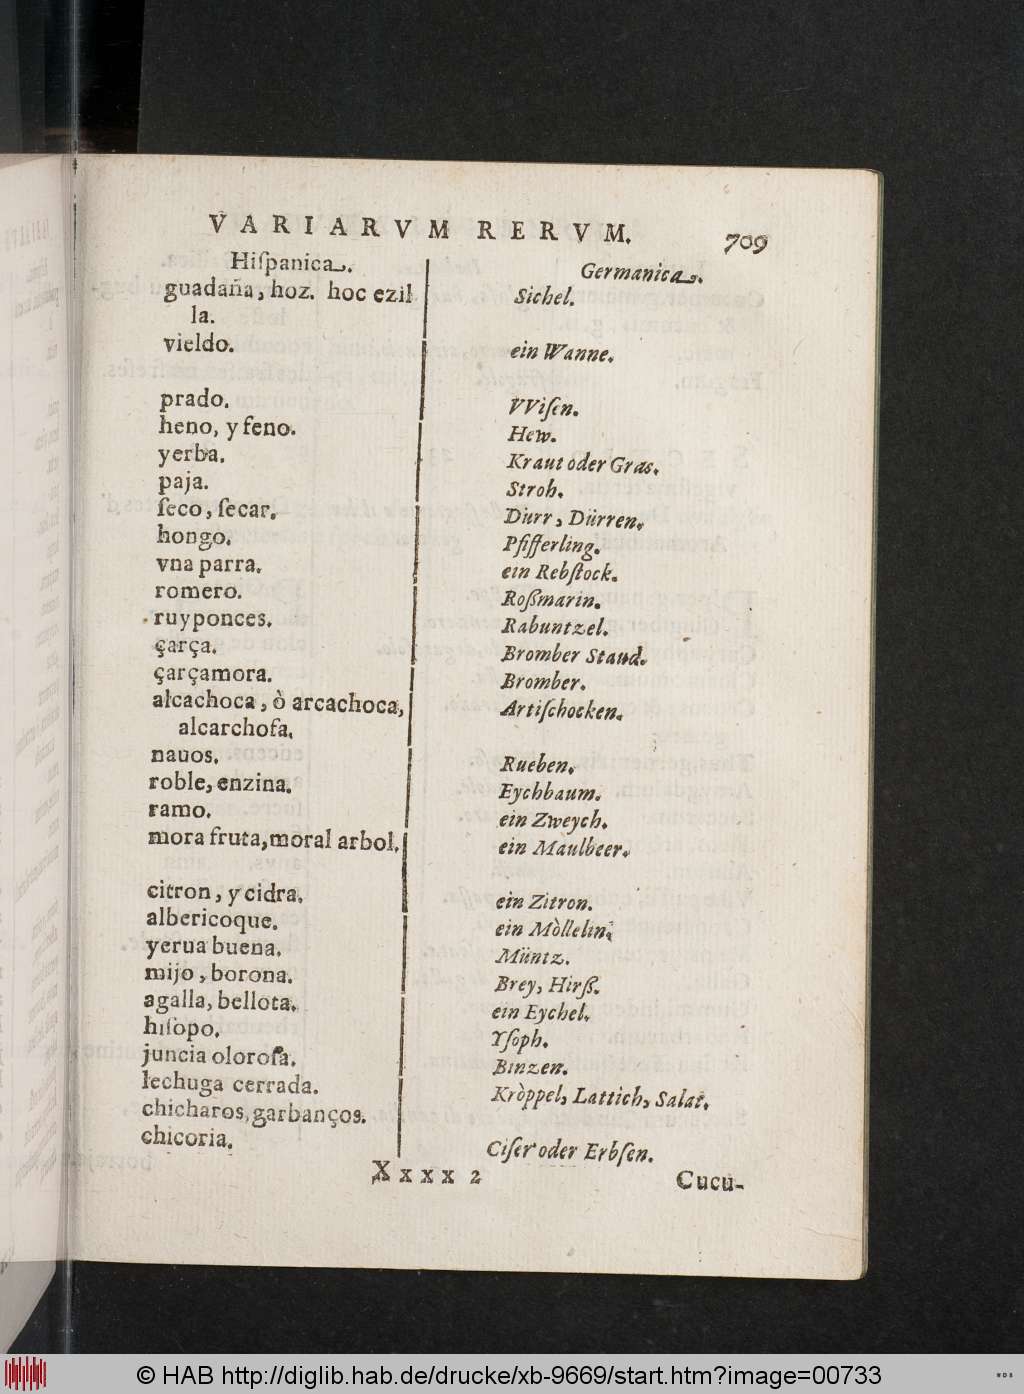 VARIARVM RERVM. 709
Hiſpanica.
guadaña, hoz. hoc ezil
la.
vieldo.
prado.
heno, y feno.
yerba.
paja.
ſeco, ſecar.
hongo.
vna parra.
romero.
ruyponces.
çarça.
çarçamora.
alcachoca, ò arcachoca,
alcarchofa.
nauos.
roble, enzina.
ramo.
mora fruta, moral arbol.
citron, y cidra.
albericoque.
yerua buena.
mijo, borona.
agalla, bellota.
hiſopo.
juncia oloroſa.
lechuga cerrada.
chicharos, garbanços.
chicoria.
Germanica.
Sichel.
ein Wanne.
VViſen.
Hew.
Kraut oder Gras.
Stroh.
Durr, Dürren.
Pfifferling.
ein Rebſtock.
Roßmarin.
Rabuntzel.
Bromber Staud.
Bromber.
Artiſchocken.
Rueben.
Eychbaum.
ein Zweych.
ein Maulbeer.
ein Zitron.
ein Mòllelin.
Müntz.
Brey, Hirß.
ein Eychel.
Yſoph.
Binzen.
Kròppel, Lattich, Salat.
Ciſer oder Erbſen.
Xxxx 2
Cucu-
© HAB http://diglib.hab.de/drucke/xb-9669/start.htm?image=00733